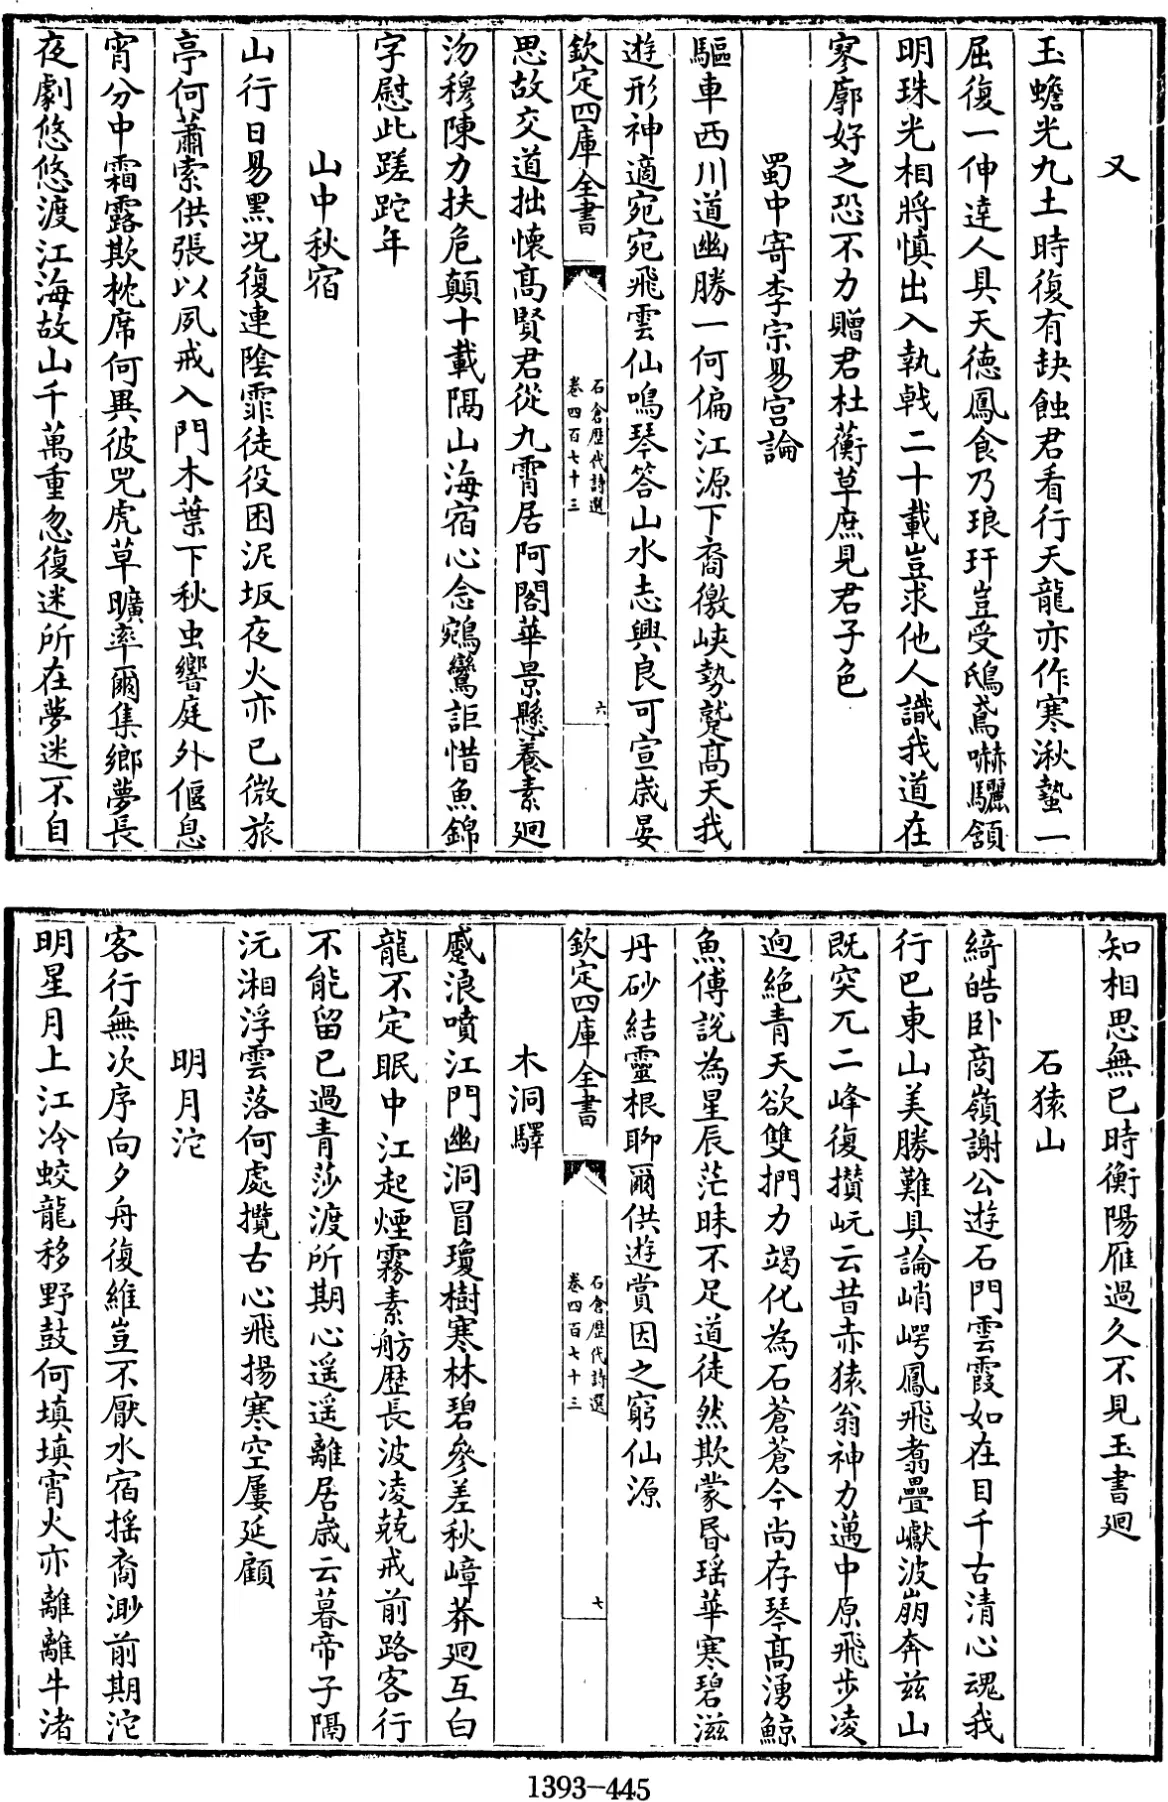 又
玉蟾光九土時復有缺蝕君看行天龍亦作寒湫蟄一
屈復一伸達人具天德鳳食乃琅玕豈受鴟鳶嚇驪頷
明珠光相將慎出入執戟二十載豈求他人識我道在
寥廓好之恐不力贈君杜蘅草庶見君子色
蜀中寄李宗易宫論
驅車西川道幽勝一何偏江源下裔徼峽勢蹙高天我
遊形神適宛宛飛雲仙鳴琴答山水志興良可宣歳晏
欽定四庫全書
石倉歴代詩選
卷四百七十三
六
思故交道拙懷高賢君從九霄居阿閣華景懸養素廻
沕穆陳力扶危顛十載隔山海宿心念鵷鸞詎惜魚錦
字慰此蹉跎年
山中秋宿
山行日易黑況復連陰霏徒役困泥坂夜火亦已微旅
亭何蕭索供張以夙戒入門木葉下秋虫響庭外偃息
宵分中霜露欺枕席何異彼兕虎草曠率爾集鄉夢長
夜劇悠悠渡江海故山千萬重忽復迷所在夢迷不自
知相思無已時衡陽雁過久不見玉書廻
石猿山
綺皓卧商嶺謝公遊石門雲霞如在目千古清心魂我
行巴東山美勝難具論峭崿鳳飛翥疊巘波崩奔兹山
既突兀二峰復攅岏云昔赤猿翁神力邁中原飛步凌
逈絕青天欲雙捫力竭化為石蒼蒼今尚存琴高湧鯨
魚傅說為星辰茫昧不足道徒然欺蒙昬瑶華寒碧滋
丹砂結靈根聊爾供遊賞因之窮仙源
欽定四庫全書
石倉歴代詩選
卷四百七十三
七
木洞驛
蹙浪噴江門幽洞冒瓊樹寒林碧參差秋嶂莽廻互白
龍不定眠中江起煙霧素舫歴長波凌兢戒前路客行
不能留已過青莎渡所期心遥遥離居歳云暮帝子隔
沅湘浮雲落何處攬古心飛揚寒空屢延顧
明月沱
客行無次序向夕舟復維豈不厭水宿摇裔渺前期沱
明星月上江冷蛟龍移野鼓何填填宵火亦離離牛渚
1393-445